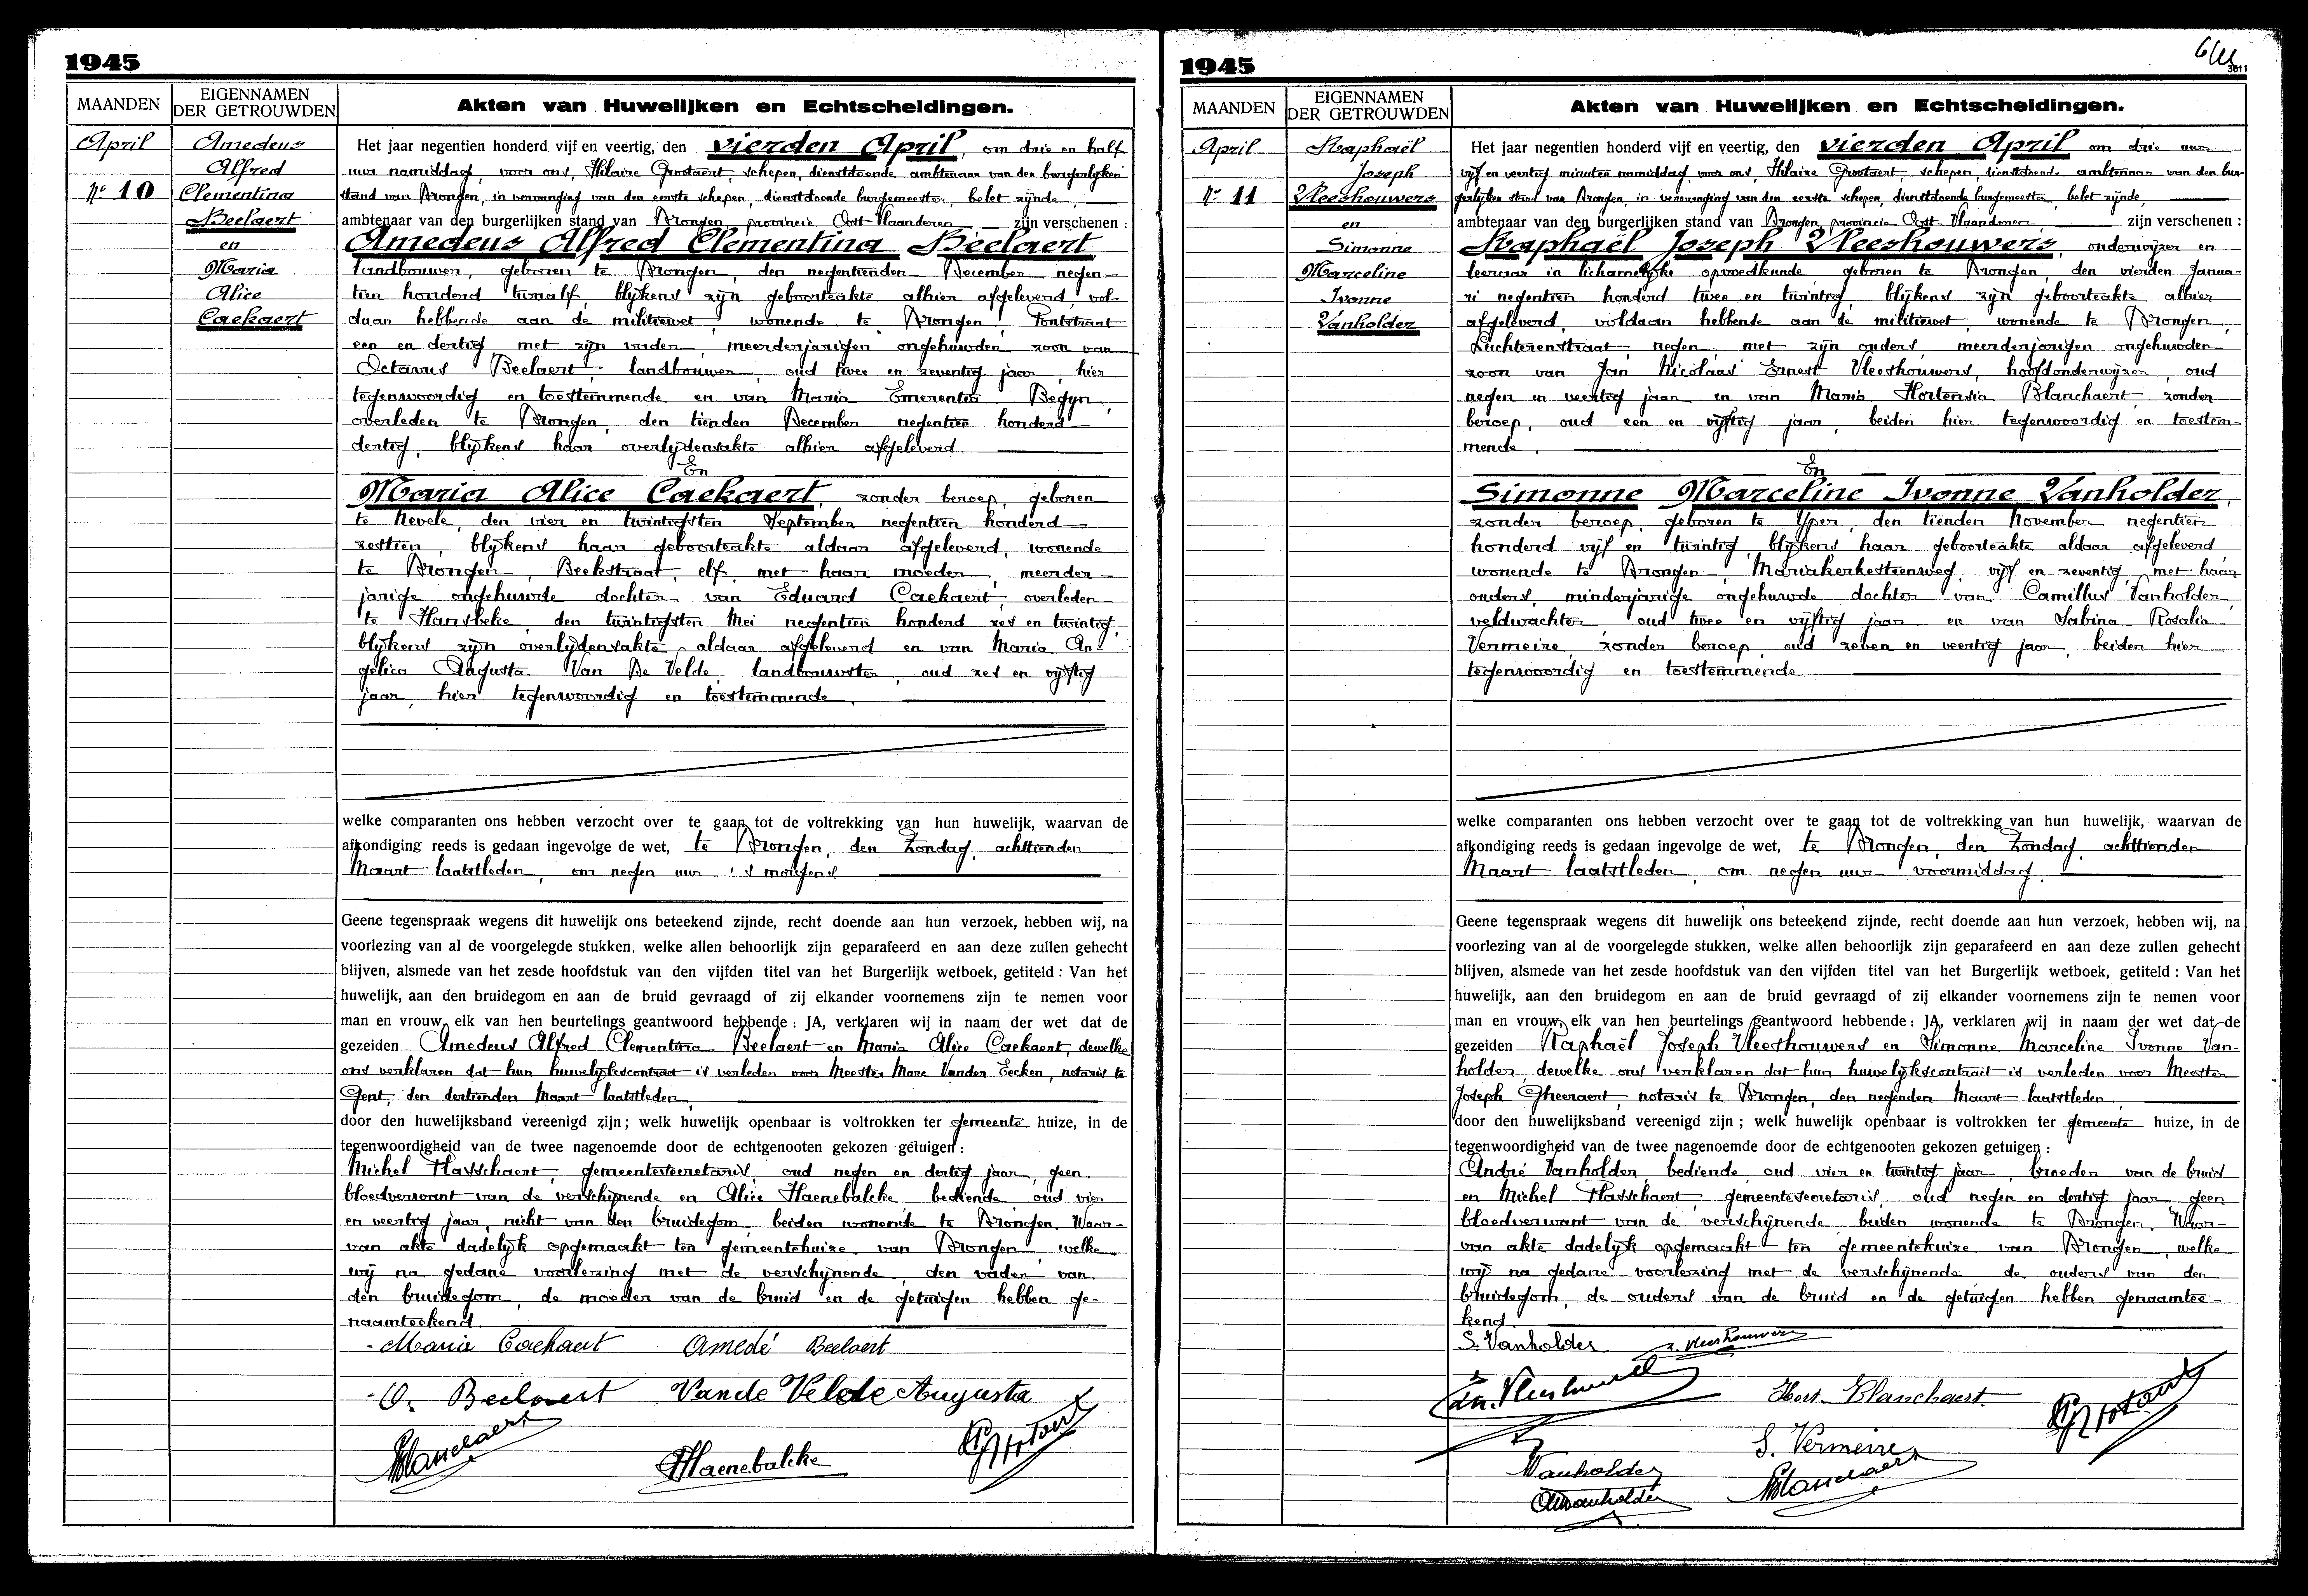 1945
MAANDEN
EIGENNAMEN
DER GETROUWDEN
Akten van Huwelijken en Echtscheidingen.
April
Nr 10
Amedeus
Alfred
Clementina
Beelaert
en
Maria
Alice
Caekaert
Het jaar negentien honderd vijf en veertig, den vierden April, om drie en half
uur namiddag, voor ons, Hilaire Grootaert, schepen, dienstdoende ambtenaar van den burgerlijken
stand van Drongen, in vervanging van den eerste schepen, dienstdoende burgemeester, belet zijnde,
ambtenaar van den burgerlijken stand van Drongen, provincie Oost Vlaanderen zijn verschenen :
Amedeus Alfred Clementina Beelaert
landbouwer, geboren te Drongen, den negentienden December negen-
tien honderd twaalf, blijkens zijn geboorteakte alhier afgeleverd, vol-
daan hebbende aan de militiewet, wonende te Drongen, Pontstraat
een en dertig met zijn vader, meerderjarigen ongehuwden zoon van
Octavus Beelaert, landbouwer, oud twee en zeventig jaar, hier
tegenwoordig en toestemmende en van Maria Emerentia Begyn,
overleden te Drongen, den tienden December negentien honderd
dertig, blijkens haar overlijdensakte alhier afgeleverd
En
Maria Alice Caekaert, zonder beroep, geboren
te Nevele, den vier en twintigsten September negentien honderd
zestien, blijkens haar geboorteakte aldaar afgeleverd, wonende
te Drongen, Beekstraat, elf, met haar moeder, meerder-
jarige ongehuwde dochter van Eduard Caekaert, overleden
te Hansbeke, den twintigsten Mei negentien honderd zes en twintig,
blijkens zijn overlijdensakte, aldaar afgeleverd en van Maria An-
gelica Augusta Van De Velde, landbouwster, oud zes en vijftig
jaar, hier tegenwoordig en toestemmende.
welke comparanten ons hebben verzocht over te gaan tot de voltrekking van hun huwelijk, waarvan de
afkondiging reeds is gedaan ingevolge de wet, te Drongen, den Zondag, achttienden
Maart laatstleden, om negen uur 's morgens
Geene tegenspraak wegens dit huwelijk ons beteekend zijnde, recht doende aan hun verzoek, hebben wij, na
voorlezing van al de voorgelegde stukken, welke allen behoorlijk zijn geparafeerd en aan deze zullen gehecht
blijven, alsmede van het zesde hoofdstuk van den vijfden titel van het Burgerlijk wetboek, getiteld : Van het
huwelijk, aan den bruidegom en aan de bruid gevraagd of zij elkander voornemens zijn te nemen voor
man en vrouw, elk van hen beurtelings geantwoord hebbende : JA, verklaren wij in naam der wet dat de
gezeiden Amedeus Alfred Clementina Beelaert en Maria Alice Caekaert, dewelke
ons verklaren dat hun huwelijkscontract is verleden voor Meester Marc Vander Eecken, notaris te
Gent, den dertienden Maart laatstleden,
door den huwelijksband vereenigd zijn ; welk huwelijk openbaar is voltrokken ter gemeente huize, in de
tegenwoordigheid van de twee nagenoemde door de echtgenooten gekozen getuigen :
Michel Hasschaert, gemeentesecretaris, oud negen en dertig jaar, geen
bloedverwant van de verschijnende en Alice Haenebalcke bediende oud vier
en veertig jaar, nicht van den bruidegom, beiden wonende te Drongen. Waar-
van akte dadelijk opgemaakt ten gemeentehuize van Drongen, welke
wij na gedane voorlezing met de verschijnende, den vader van
den bruidegom, de moeder van de bruid en de getuigen hebben ge-
naamteekend.
Maria Caekaert Amedé Beelaert
O. Beelaert Vande Velde Augusta
AHaenebalcke
1945
3611
MAANDEN
EIGENNAMEN
DER GETROUWDEN
Akten van Huwelijken en Echtscheidingen.
April
Nr 11
Raphaël
Joseph
Vleeshouwers
en
Simonne
Marceline
Ivonne
Vanholder
Het jaar negentien honderd vijf en veertig, den vierden April om drie uur
vijf en veertig minuten namiddag, voor ons, Hilaire Grootaert, schepen, dienstdoende ambtenaar van den bur-
gerlijken stand van Drongen, in vervanging van den eerste schepen, dienstdoende burgemeester, belet zijnde,
ambtenaar van den burgerlijken stand van Drongen, provincie Oost Vlaanderen, zijn verschenen :
Raphaël Joseph Vleeshouwers, onderwijzer en
leeraar in lichamelijke opvoedkunde geboren te Drongen, den vierden Janua-
ri negentien honderd twee en twintig, blijkens zijn geboorteakte alhier
afgeleverd, voldaan hebbende aan de militiewet, wonende te Drongen,
Luchterenstraat, negen, met zijn ouders, meerderjarigen ongehuwden
zoon van Jan Nicolaas Ernest Vleeshouwers, hoofdonderwijzer, oud
negen en veertig jaar en van Maria Hortensia Blanchaert zonder
beroep, oud een en vijftig jaar, beiden hier tegenwoordig en toestem-
mende.
En
Simonne Marceline Ivonne Vanholder,
zonder beroep, geboren te Yper, den tienden November negentien
honderd vijf en twintig, blijkens haar geboorteakte aldaar afgeleverd,
wonende te Drongen, Mariakerkesteenweg, vijf en zeventig, met haar
ouders, minderjarige ongehuwde dochter van Camillus Vanholder,
veldwachter oud twee en vijftig jaar en van Sabina Rosalia
Vermeire, zonder beroep, oud zeven en veertig jaar, beiden hier
tegenwoordig en toestemmende
welke comparanten ons hebben verzocht over te gaan tot de voltrekking van hun huwelijk, waarvan de
afkondiging reeds is gedaan ingevolge de wet, te Drongen, den Zondag, achttienden
Maart laatstleden, om negen uur voormiddag.
Geene tegenspraak wegens dit huwelijk ons beteekend zijnde, recht doende aan hun verzoek, hebben wij, na
voorlezing van al de voorgelegde stukken, welke allen behoorlijk zijn geparafeerd en aan deze zullen gehecht
blijven, alsmede van het zesde hoofdstuk van den vijfden titel van het Burgerlijk wetboek, getiteld : Van het
huwelijk, aan den bruidegom en aan de bruid gevraagd of zij elkander voornemens zijn te nemen voor
man en vrouw, elk van hen beurtelings geantwoord hebbende : JA, verklaren wij in naam der wet dat de
gezeiden Raphaël Joseph Vleeshouwers en Simonne Marceline Ivonne Van-
holder, dewelke ons verklaren dat hun huwelijkscontract is verleden voor Meester
Joseph Gheeraert, notaris te Drongen, den negenden Maart laatstleden,
door den huwelijksband vereenigd zijn ; welk huwelijk openbaar is voltrokken ter gemeente huize, in de
tegenwoordigheid van de twee nagenoemde door de echtgenooten gekozen getuigen :
André Vanholder, bediende, oud vier en twintig jaar, broeder van de bruid
en Michel Hasschaert, gemeentesecretaris, oud negen en dertig jaar geen
bloedverwant van de verschijnende beiden wonende te Drongen. Waar-
van akte dadelijk opgemaakt ten gemeentehuize van Drongen, welke
wij na gedane voorlezing met de verschijnende de ouders van den
bruidegom, de ouders van de bruid en de getuigen hebben genaamtee-
kend.
S. Vanholder r. Vleeshouwers
Hort. Blanchaert.
S. Vermeire
Vanholder